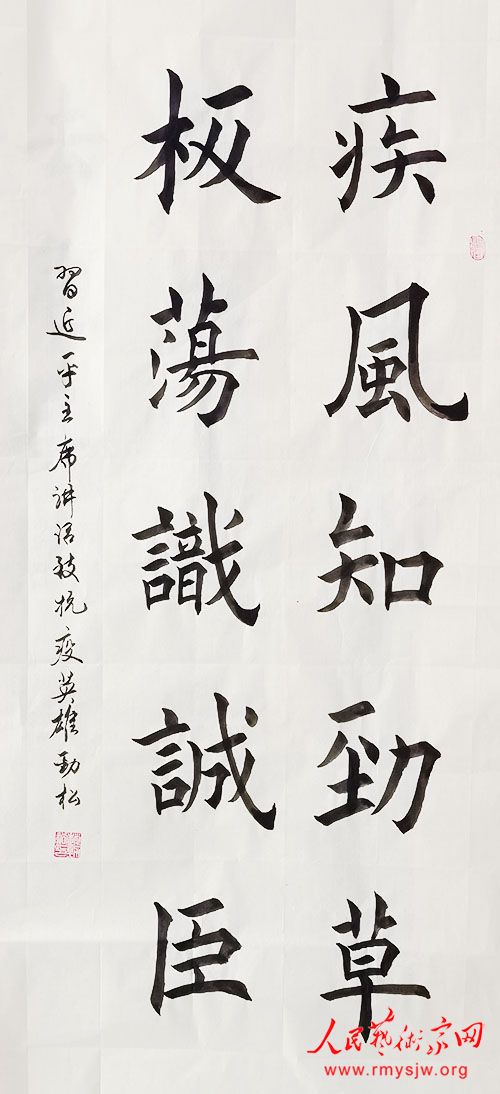 疾風知勁草
板蕩識誠臣
習近平主席讲话致抗疫英雄勁松
人民藝術家网
www.rmysjw.org